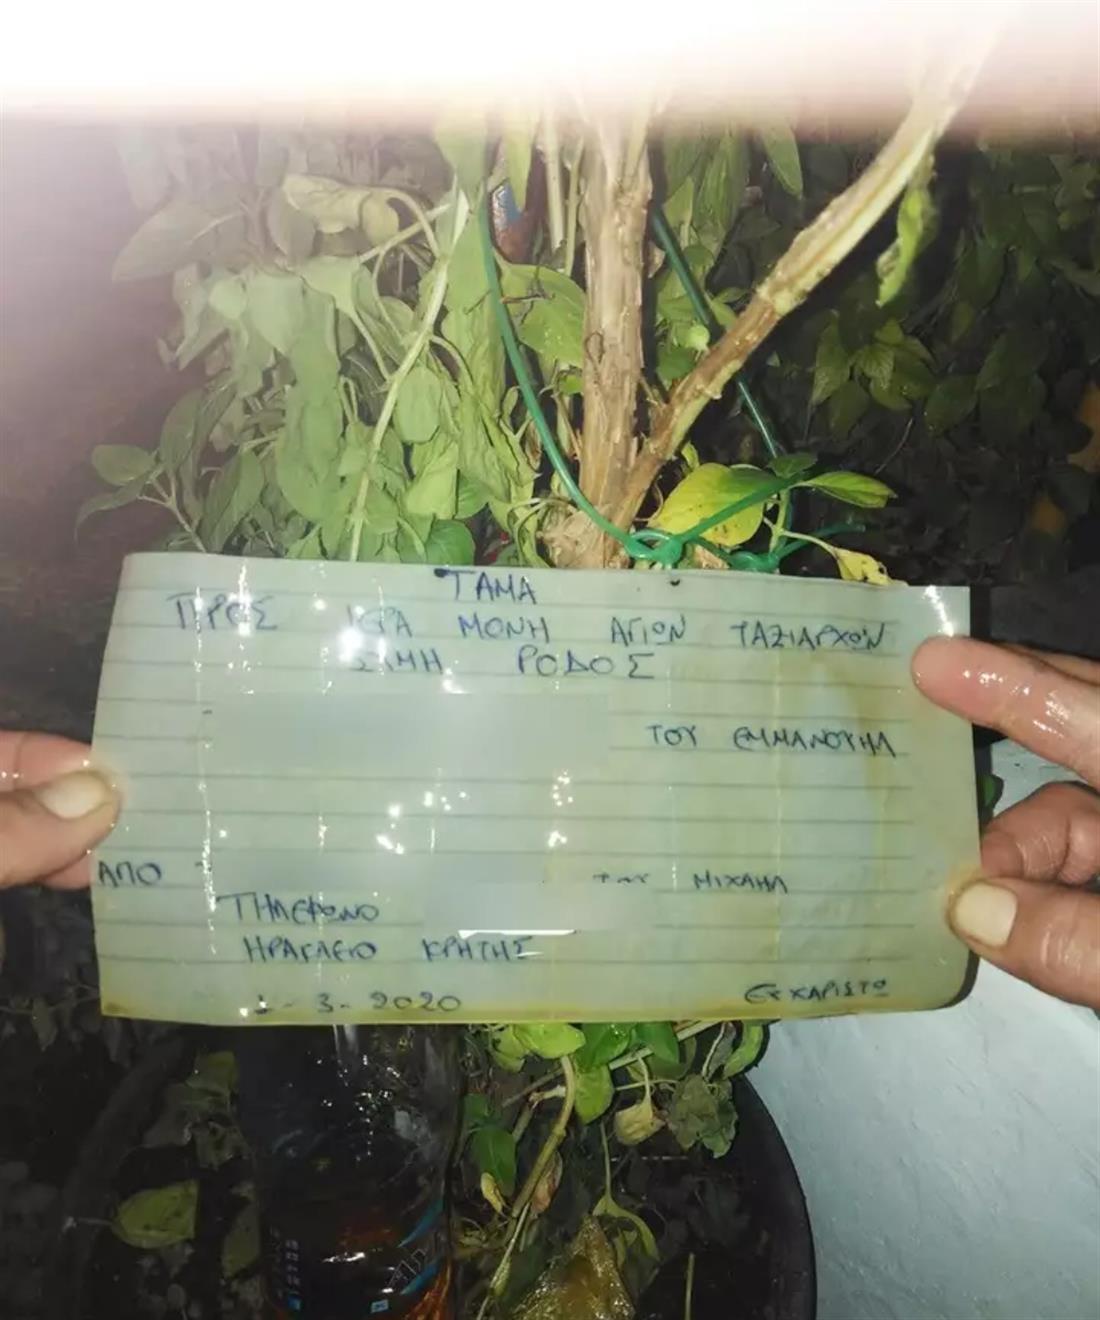 ΤΑΜΑ
ΠΡΟΣ ΙΕΡΑ ΜΟΝΗ ΑΓΙΩΝ ΤΑΞΙΑΡΧΩΝ
ΣΙΜΗ ΡΟΔΟΣ
ΤΟΥ ΕΜΜΑΝΟΥΗΛ
ΑΠΟ ΤΟΥ ΜΙΧΑΗΛ
ΤΗΛΕΦΩΝΟ
ΗΡΑΚΛΕΙΟ ΚΡΗΤΗΣ
3-2020 ΕΥΧΑΡΙΣΤΩ